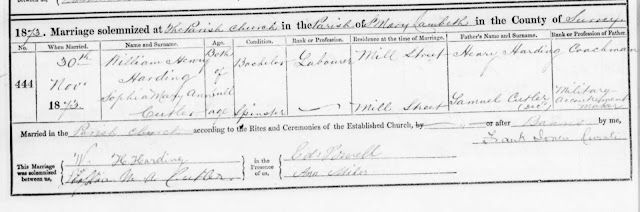 1873. Marriage solemnized at The Parish Church in the Parish of St Mary Lambeth in the County of Surrey
No. When Married. Name and Surname. Age. Condition. Rank or Profession. Residence at the time of Marriage. Father's Name and Surname. Rank or Profession of Father.
444 30th Nov. 1873. William Henry Harding Both Bachelor Labourer Mill Street Henry Harding Coachman
Sophia Mary Cutler of age Spinster Mill Street Samuel Cutler (dec) Military Accoutrement Maker
Married in the Parish Church according to the Rites and Ceremonies of the Established Church, by or after Banns by me,
Frank Curate
This Marriage was solemnized between us,
W. H. Harding
Sophia M A Cutler
in the Presence of us,
Ann